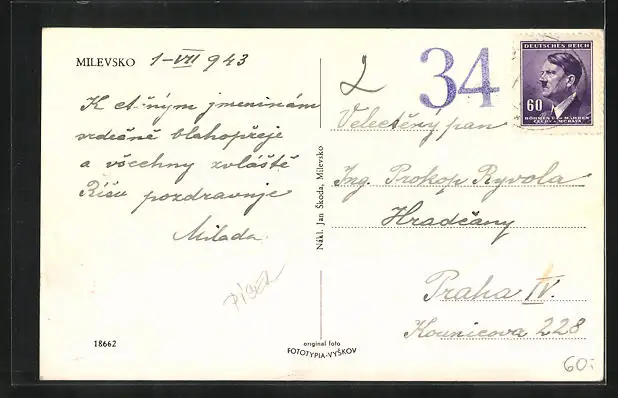 MILEVSKO 1-VII 943
K ct.ným jmeninám
srdečně blahopřeje
a všechny zvláště
Ríšu pozdravuje
Milada.
18662
Nákl. Jan Škoda, Milevsko
original foto
FOTOTYPIA-VYŠKOV
34
DEUTSCHES REICH
60
BÖHMEN u. MÄHREN
ČECHY a MORAVA
Velectěný pan
Ing. Prokop Ryvola
Hradčany
Praha IV.
Kounicova 228
60: